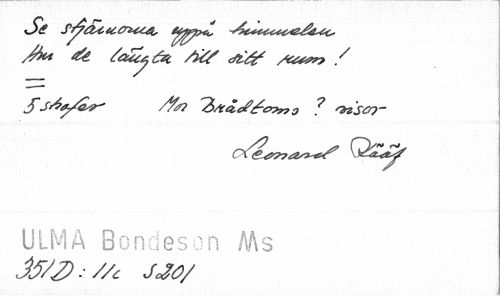 Se stjärnorna uppå himmelen
Hur de längta till sitt rum!
=
5 strofer Mor Brådtoms? visor
Leonard Rääf
ULMA Bondeson Ms
351D: 11c S 201